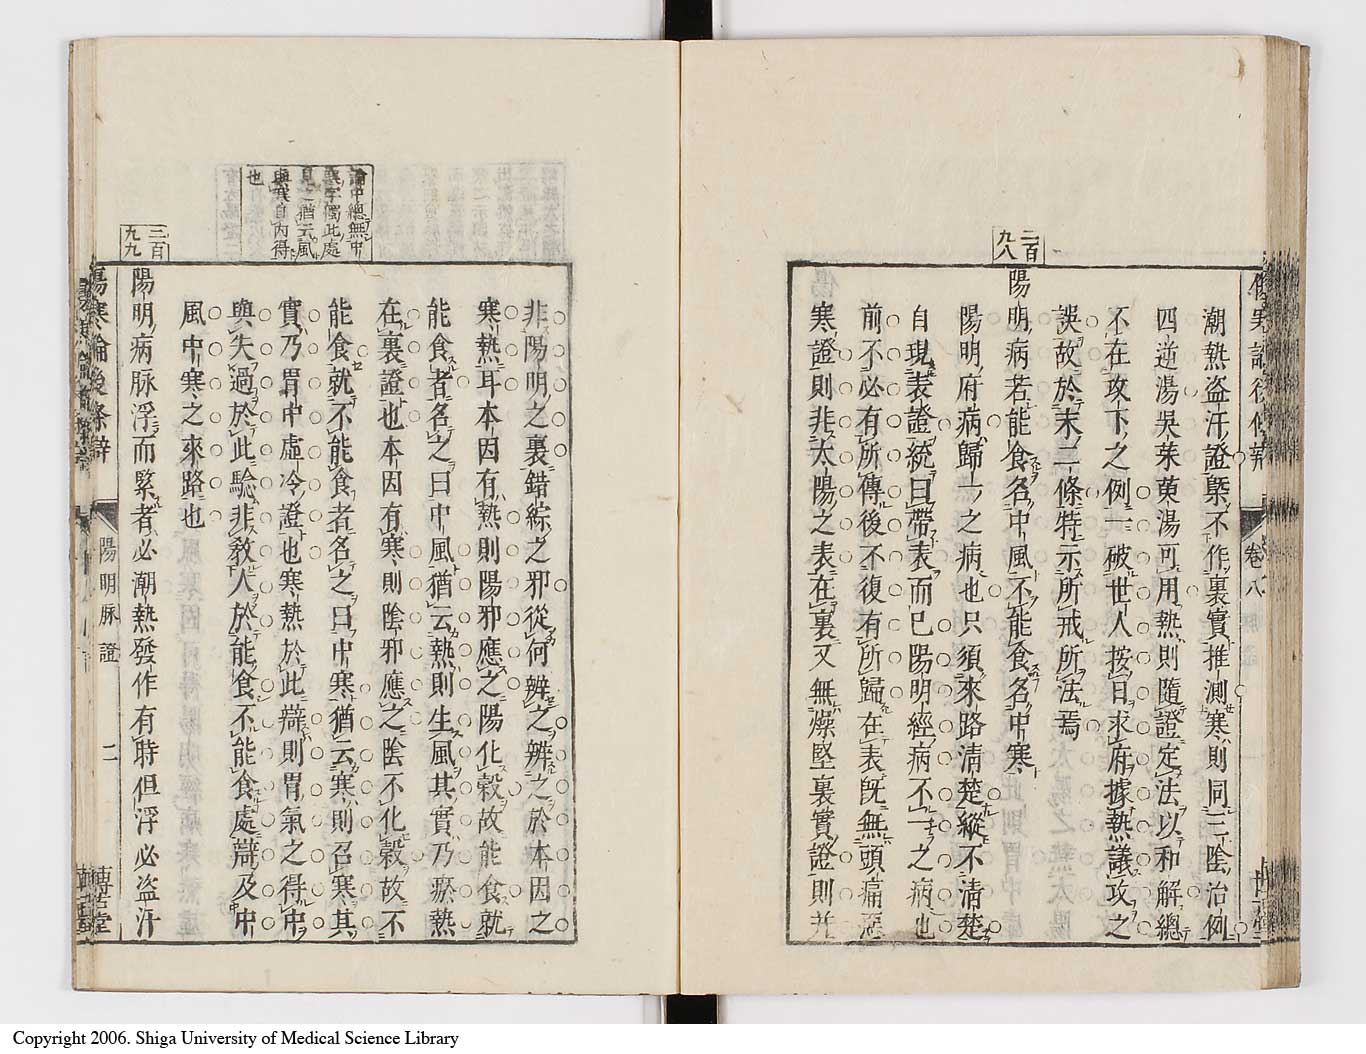 二百
九八
潮熱盗汗證槩不作裏實推測寒則同三陰治例
四逆湯吳茱萸湯可用熱則隨證定法以和解總
不在攻下之例一破世人按日求府據熱議攻之
誤故於末二條特示所戒所法焉
陽明病若能食名中風不能食名中寒
陽明府病歸一之病也只須來路清楚縱不清楚
自現表證統曰帶表而已陽明經病不一之病也
前不必有所傳後不復有所歸在表旣無頭痛惡
寒證則非太陽之表在裏又無燥堅裏實證則並
卷八
論中總無中
寒字獨此處
見之猶云風
與寒自內得
也
二百
九九
非陽明之裏錯綜之邪從何辨之辨之於本因之
寒熱耳本因有熱則陽邪應之陽化穀故能食就
能食者名之曰中風猶云熱則生風其實乃瘀熱
在裏證也本因有寒則陰邪應之陰不化穀故不
能食就不能食者名之曰中寒猶云寒則召寒其
實乃胃中虛冷證也寒熱於此辯則胃氣之得中
與失過於此驗非教人於能食不能食處辯及中
風中寒之來路也
陽明病脉浮而緊者必潮熱發作有時但浮必盗汗
傷寒論後條辯
陽明脉證
二
博古堂
Copyright 2006. Shiga University of Medical Science Library